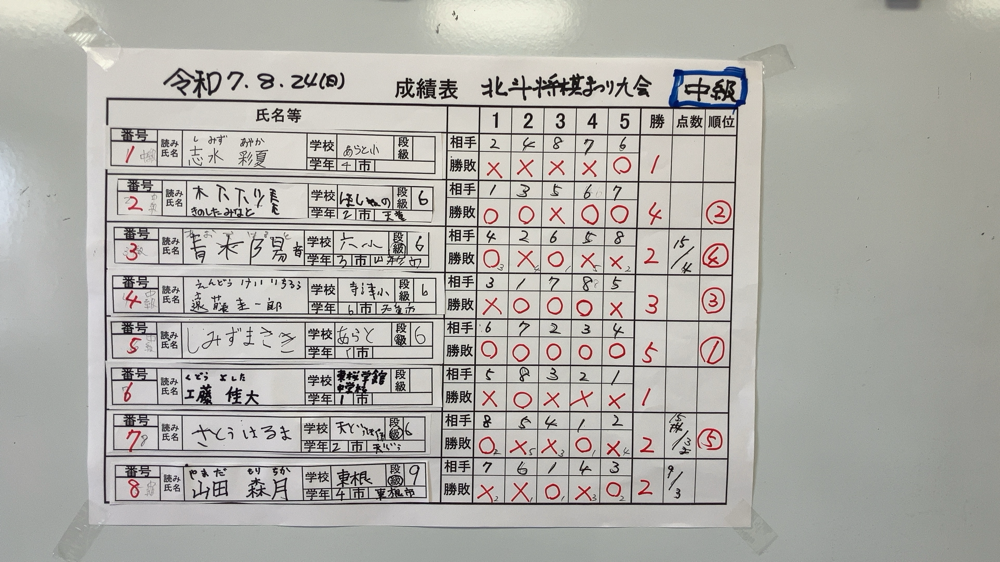 令和7.8.24(日) 成績表 北斗将棋まつり大会 中級
氏名等 1 2 3 4 5 勝 点数 順位
番号 1 読み 氏名 しみず あやか 志水 彩夏 学校 あらと小 学年 4 市 段 級
相手 2 4 8 7 6
勝敗 × × × × ○ 1
番号 2 読み 氏名 きのしたみなと 学校 学年 2 市 天童 段 級 6
相手 1 3 5 6 7
勝敗 ○ ○ × ○ ○ 4 ②
番号 3 読み 氏名 青木 学校 六小 学年 3 市 山形市 段 級 6
相手 4 2 6 5 8
勝敗 ○ × ○ × × 2 15/4 ④
番号 4 読み 氏名 えんどう けいいちろう 遠藤 圭一郎 学校 寺津小 学年 6 市 天童市 段 級 6
相手 3 1 7 8 5
勝敗 × ○ ○ ○ × 3 ③
番号 5 読み 氏名 しみずまさき 学校 あらと 学年 1 市 段 級 6
相手 6 7 2 3 4
勝敗 ○ ○ ○ ○ ○ 5 ①
番号 6 読み 氏名 くどう よした 工藤 佳大 学校 東桜学館 中学校 学年 1 市 段 級
相手 5 8 3 2 1
勝敗 × ○ × × × 1
番号 7 読み 氏名 さとうはるま 学校 学年 2 市 段 級 6
相手 8 5 4 1 2
勝敗 ○ × × ○ × 2 ⑤
番号 8 読み 氏名 やまだ もりちか 山田 森月 学校 東根 学年 4 市 東根市 段 級 9
相手 7 6 1 4 3
勝敗 × × ○ × ○ 2 9/3